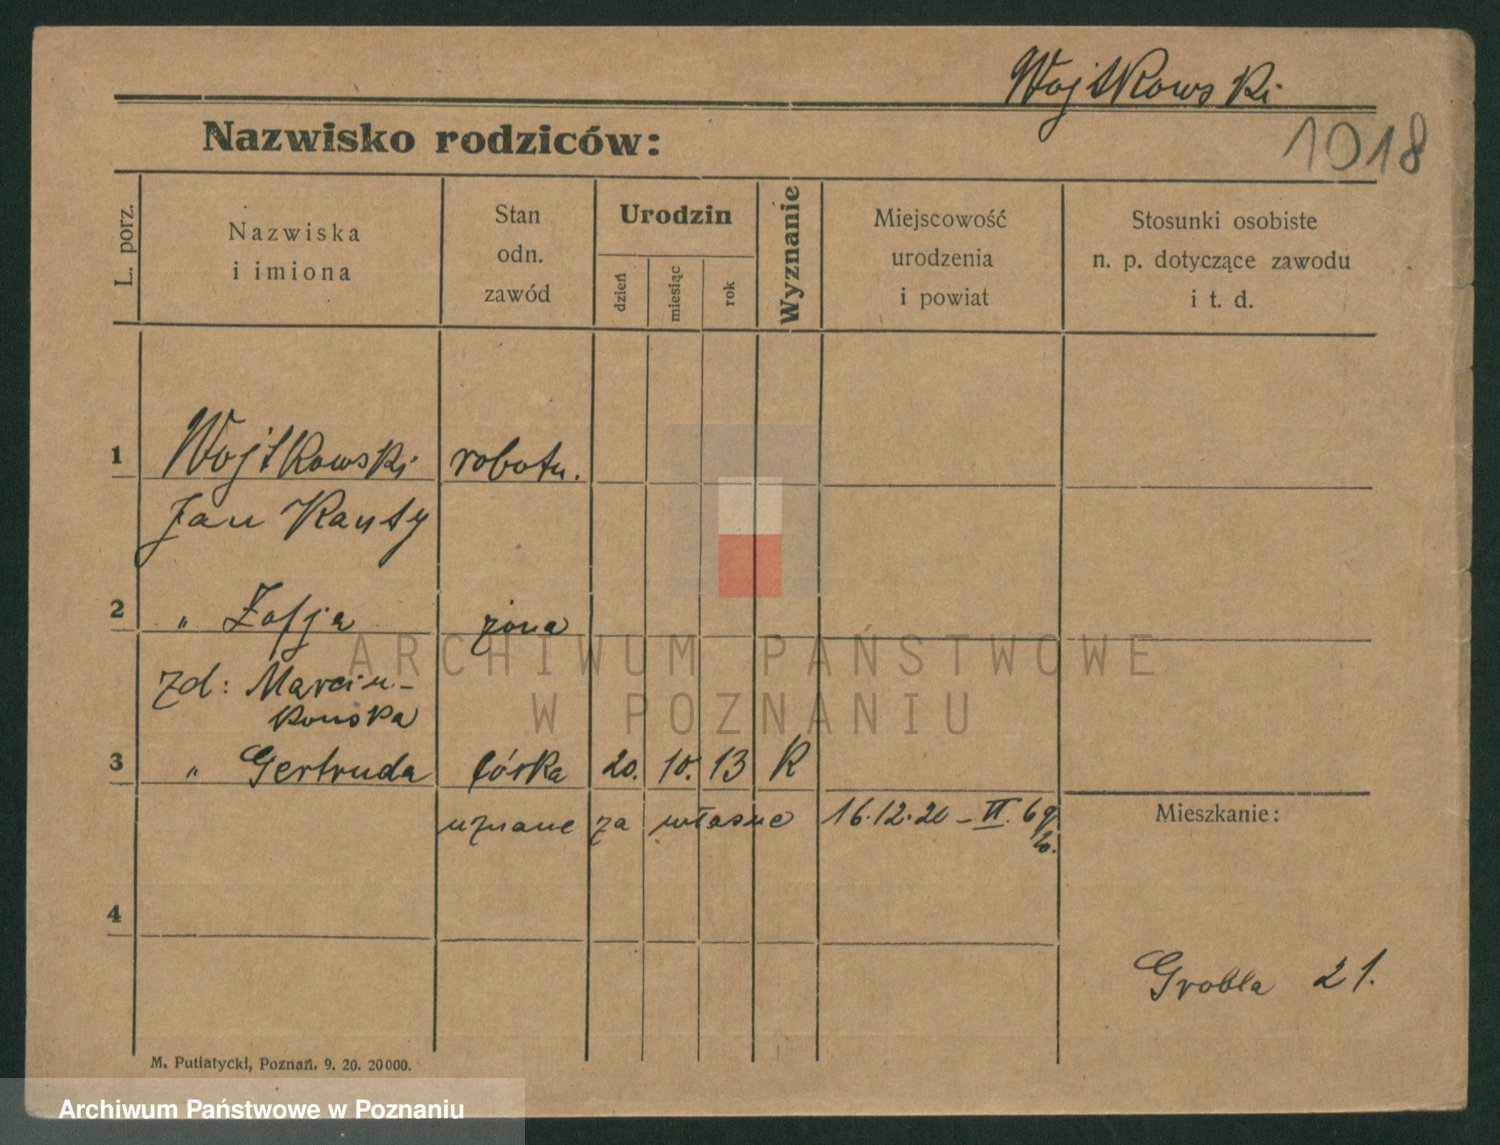 Wojtkowski
1018
Nazwisko rodziców:
L. porz.
Nazwiska
i imiona
Stan
odn.
zawód
Urodzin
dzień
miesiąc
rok
Wyznanie
Miejscowość
urodzenia
i powiat
Stosunki osobiste
n. p. dotyczące zawodu
i t. d.
1 Wojtkowski robotn.
Jan Kanty
2 „ Zofja żona
ARCHIWUM PAŃSTWOWE
W POZNANIU
zd: Marcin-
kowska
3 „ Gertruda córka 20. 10. 13 K
uznane za własne 16.12.20 – II. 69
Mieszkanie:
4
Grobla 21.
M. Putiatycki, Poznań. 9. 20. 20000.
Archiwum Państwowe w Poznaniu